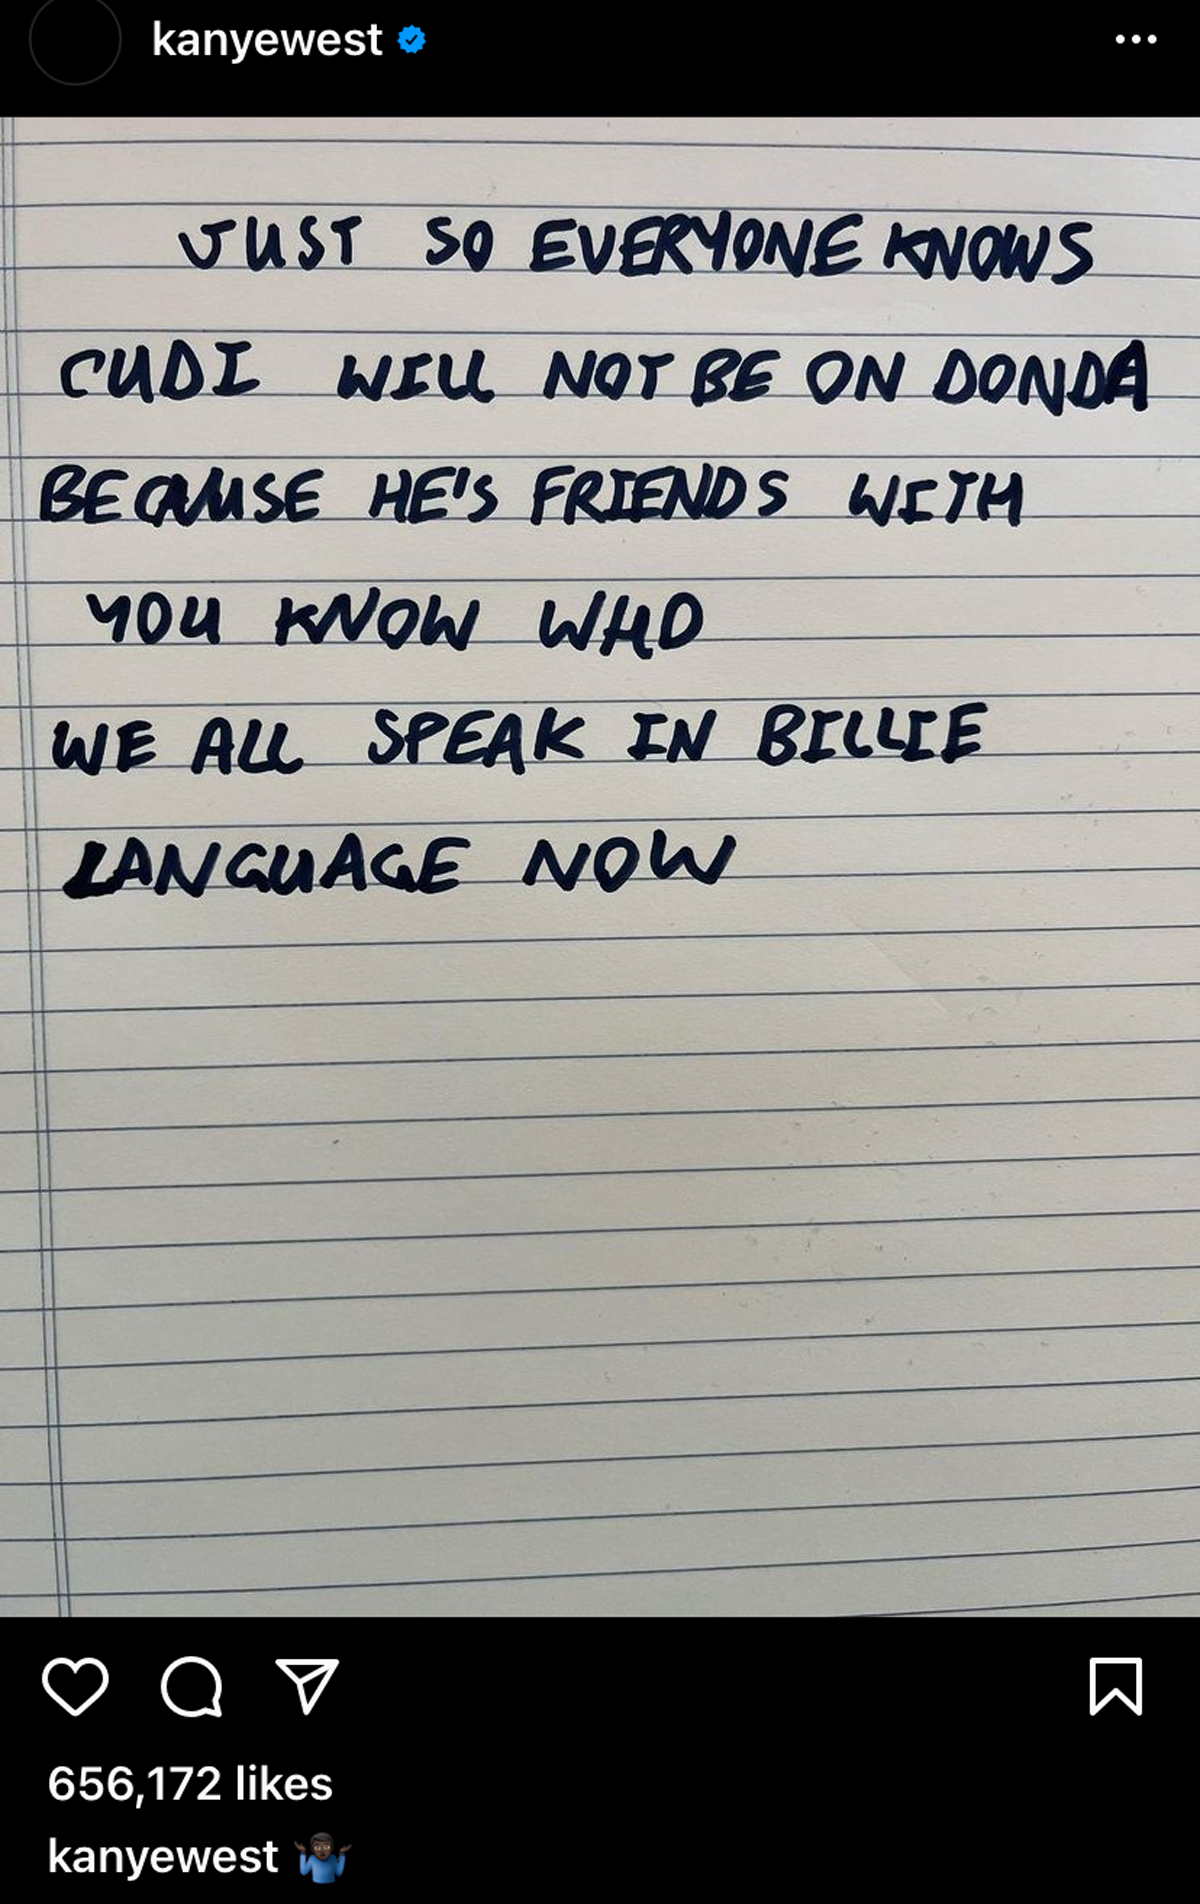 kanyewest
JUST SO EVERYONE KNOWS
CUDI WILL NOT BE ON DONDA
BECAUSE HE'S FRIENDS WITH
YOU KNOW WHO
WE ALL SPEAK IN BILLIE
LANGUAGE NOW
656,172 likes
kanyewest 🤷🏿‍♂️